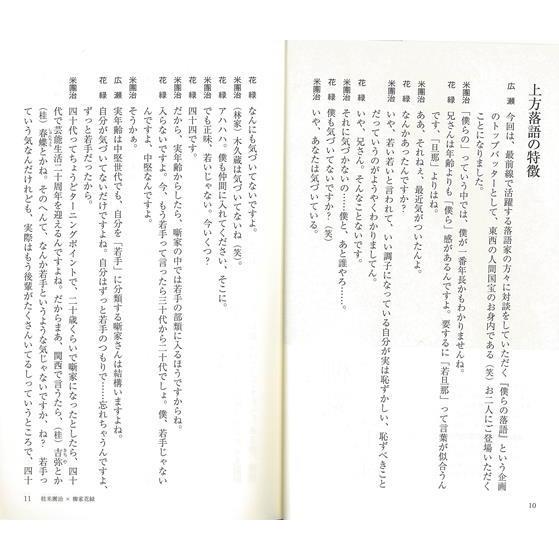 上方落語の特徴
広瀬 今回は、最前線で活躍する落語家の方々に対談をしていただく『僕らの落語』という企画
のトップバッターとして、東西の人間国宝のお身内である(笑)お二人にご登場いただく
ことになりました。
米團治 「僕らの」っていう中では、僕が一番年長かもわかりませんね。
花緑 兄さんは年齢よりも「僕ら」感があるんですよ。要するに「若旦那」って言葉が似合うん
です、「旦那」よりはね。
米團治 ああ、それねぇ、最近気がついたんよ。
花緑 なんかあったんですか?
米團治 いや、若い若いと言われて、いい調子になっている自分が実は恥ずかしい、恥ずべきこと
だっていうのがようやくわかりましてん。
花緑 いや、兄さん、そんなことないです。
米團治 それに気づかないの……僕と、あと誰やろ……。
花緑 僕も気づいてないですか?(笑)
米團治 いや、あなたは気づいている。
10
花緑 なんにも気づいてないですよ。
米團治 (林家)木久蔵は気づいてないね(笑)。
花緑 アハハ。僕も仲間に入れてください、そこに。
米團治 でも正味、若いじゃない。今いくつ?
花緑 四十四です。
米團治 だから、実年齢からしたら、噺家の中では若手の部類に入るほうですからね。
花緑 入らないですよ。今、もう若手って言ったら三十代から二十代でしょ。僕、若手じゃない
んですよ、中堅なんですよ。
米團治 そうかぁ。
広瀬 実年齢は中堅世代でも、自分を「若手」に分類する噺家さんは結構いますよね。
花緑 自分が気づいてないだけですよね。自分はずっと若手のつもりで……忘れちゃうんですよ、
ずっと若手だったから。
米團治 四十代ってちょうどターニングポイントで、二十歳くらいで噺家になったとしたら、四十
代で芸能生活二十周年を迎えるんですよね。だからまあ、関西で言うたら、(桂)吉弥とか
(桂)春蝶とかね。そのへんて、なんか若手というような気じゃないですか、ね? 若手っ
ていう気なんだけれども、実際はもう後輩がたくさんいてるしっていうところで、四十
11 桂米團治×柳家花緑